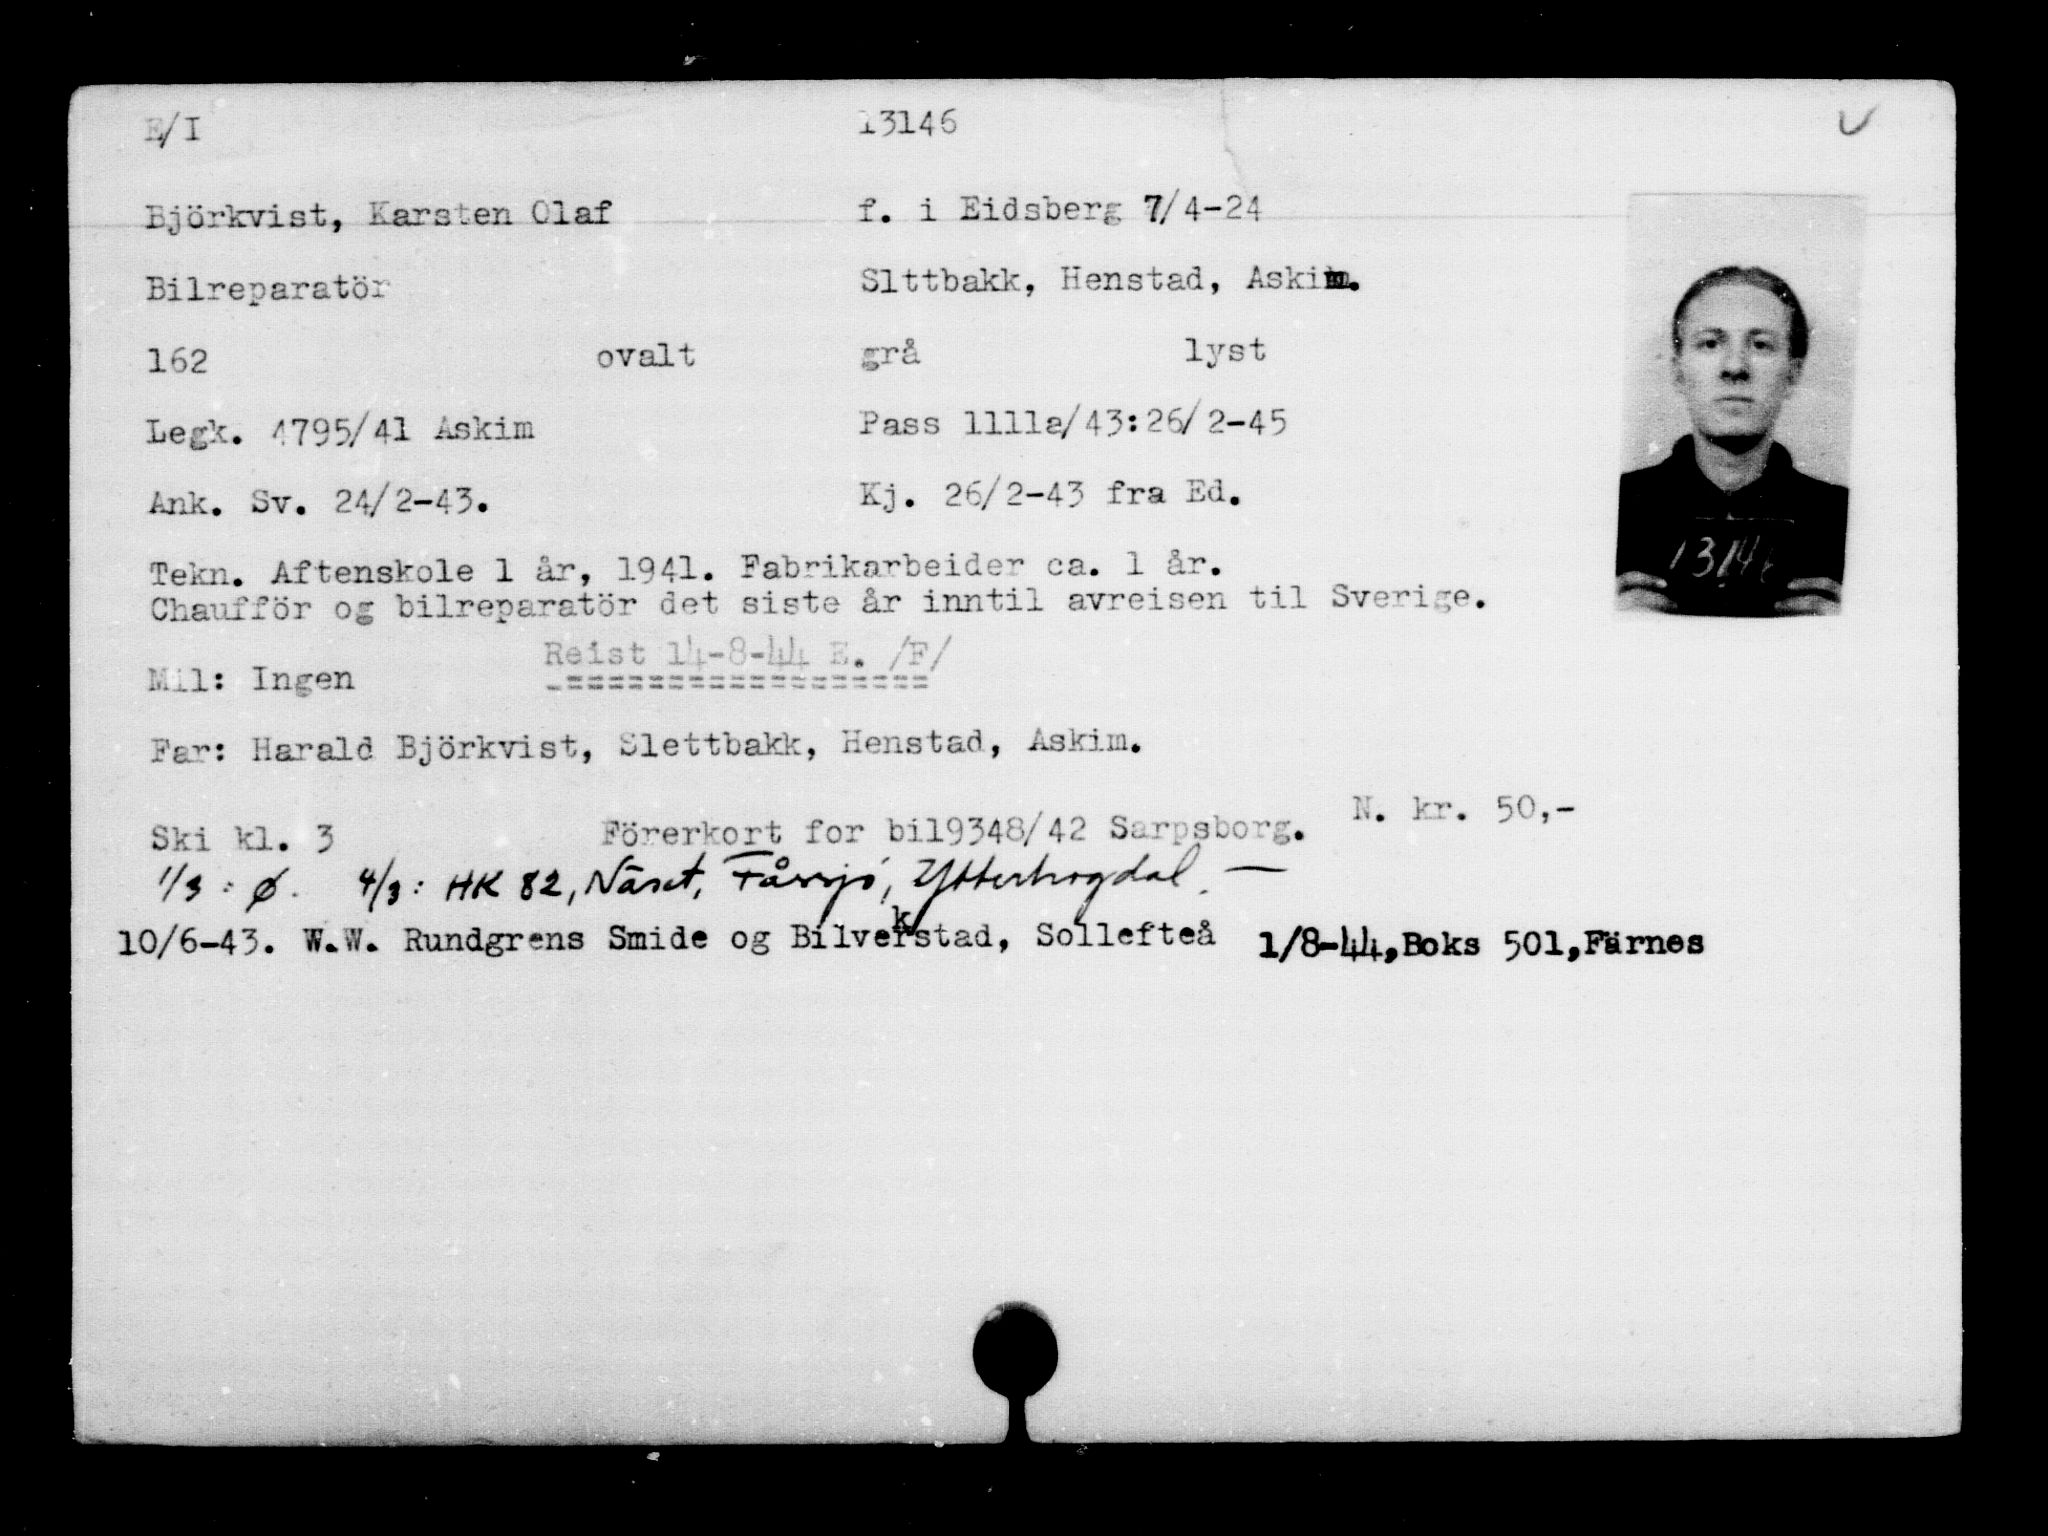 E/I 13146
Björkvist, Karsten Olaf f. i Eidsberg 7/4-24
Bilreparatör Slttbakk, Henstad, Askim.
162 ovalt grå lyst
Legk. 4795/41 Askim Pass 1111a/43:26/2-45
Ank. Sv. 24/2-43. Kj. 26/2-43 fra Ed.
Tekn. Aftenskole 1 år, 1941. Fabrikarbeider ca. 1 år.
Chaufför og bilreparatör det siste år inntil avreisen til Sverige.
Reist 14-8-44 E. /F/
Mil: Ingen
Far: Harald Björkvist, Slettbakk, Henstad, Askim.
N. kr. 50,-
Ski kl. 3 Förerkort for bil9348/42 Sarpsborg.
1/3: Ø. 4/3: HK 82, Näset, Fåssjö, Ytterhogdal. —
10/6-43. W.W. Rundgrens Smide og Bilverkstad, Sollefteå 1/8-44,Boks 501,Färnes
1314